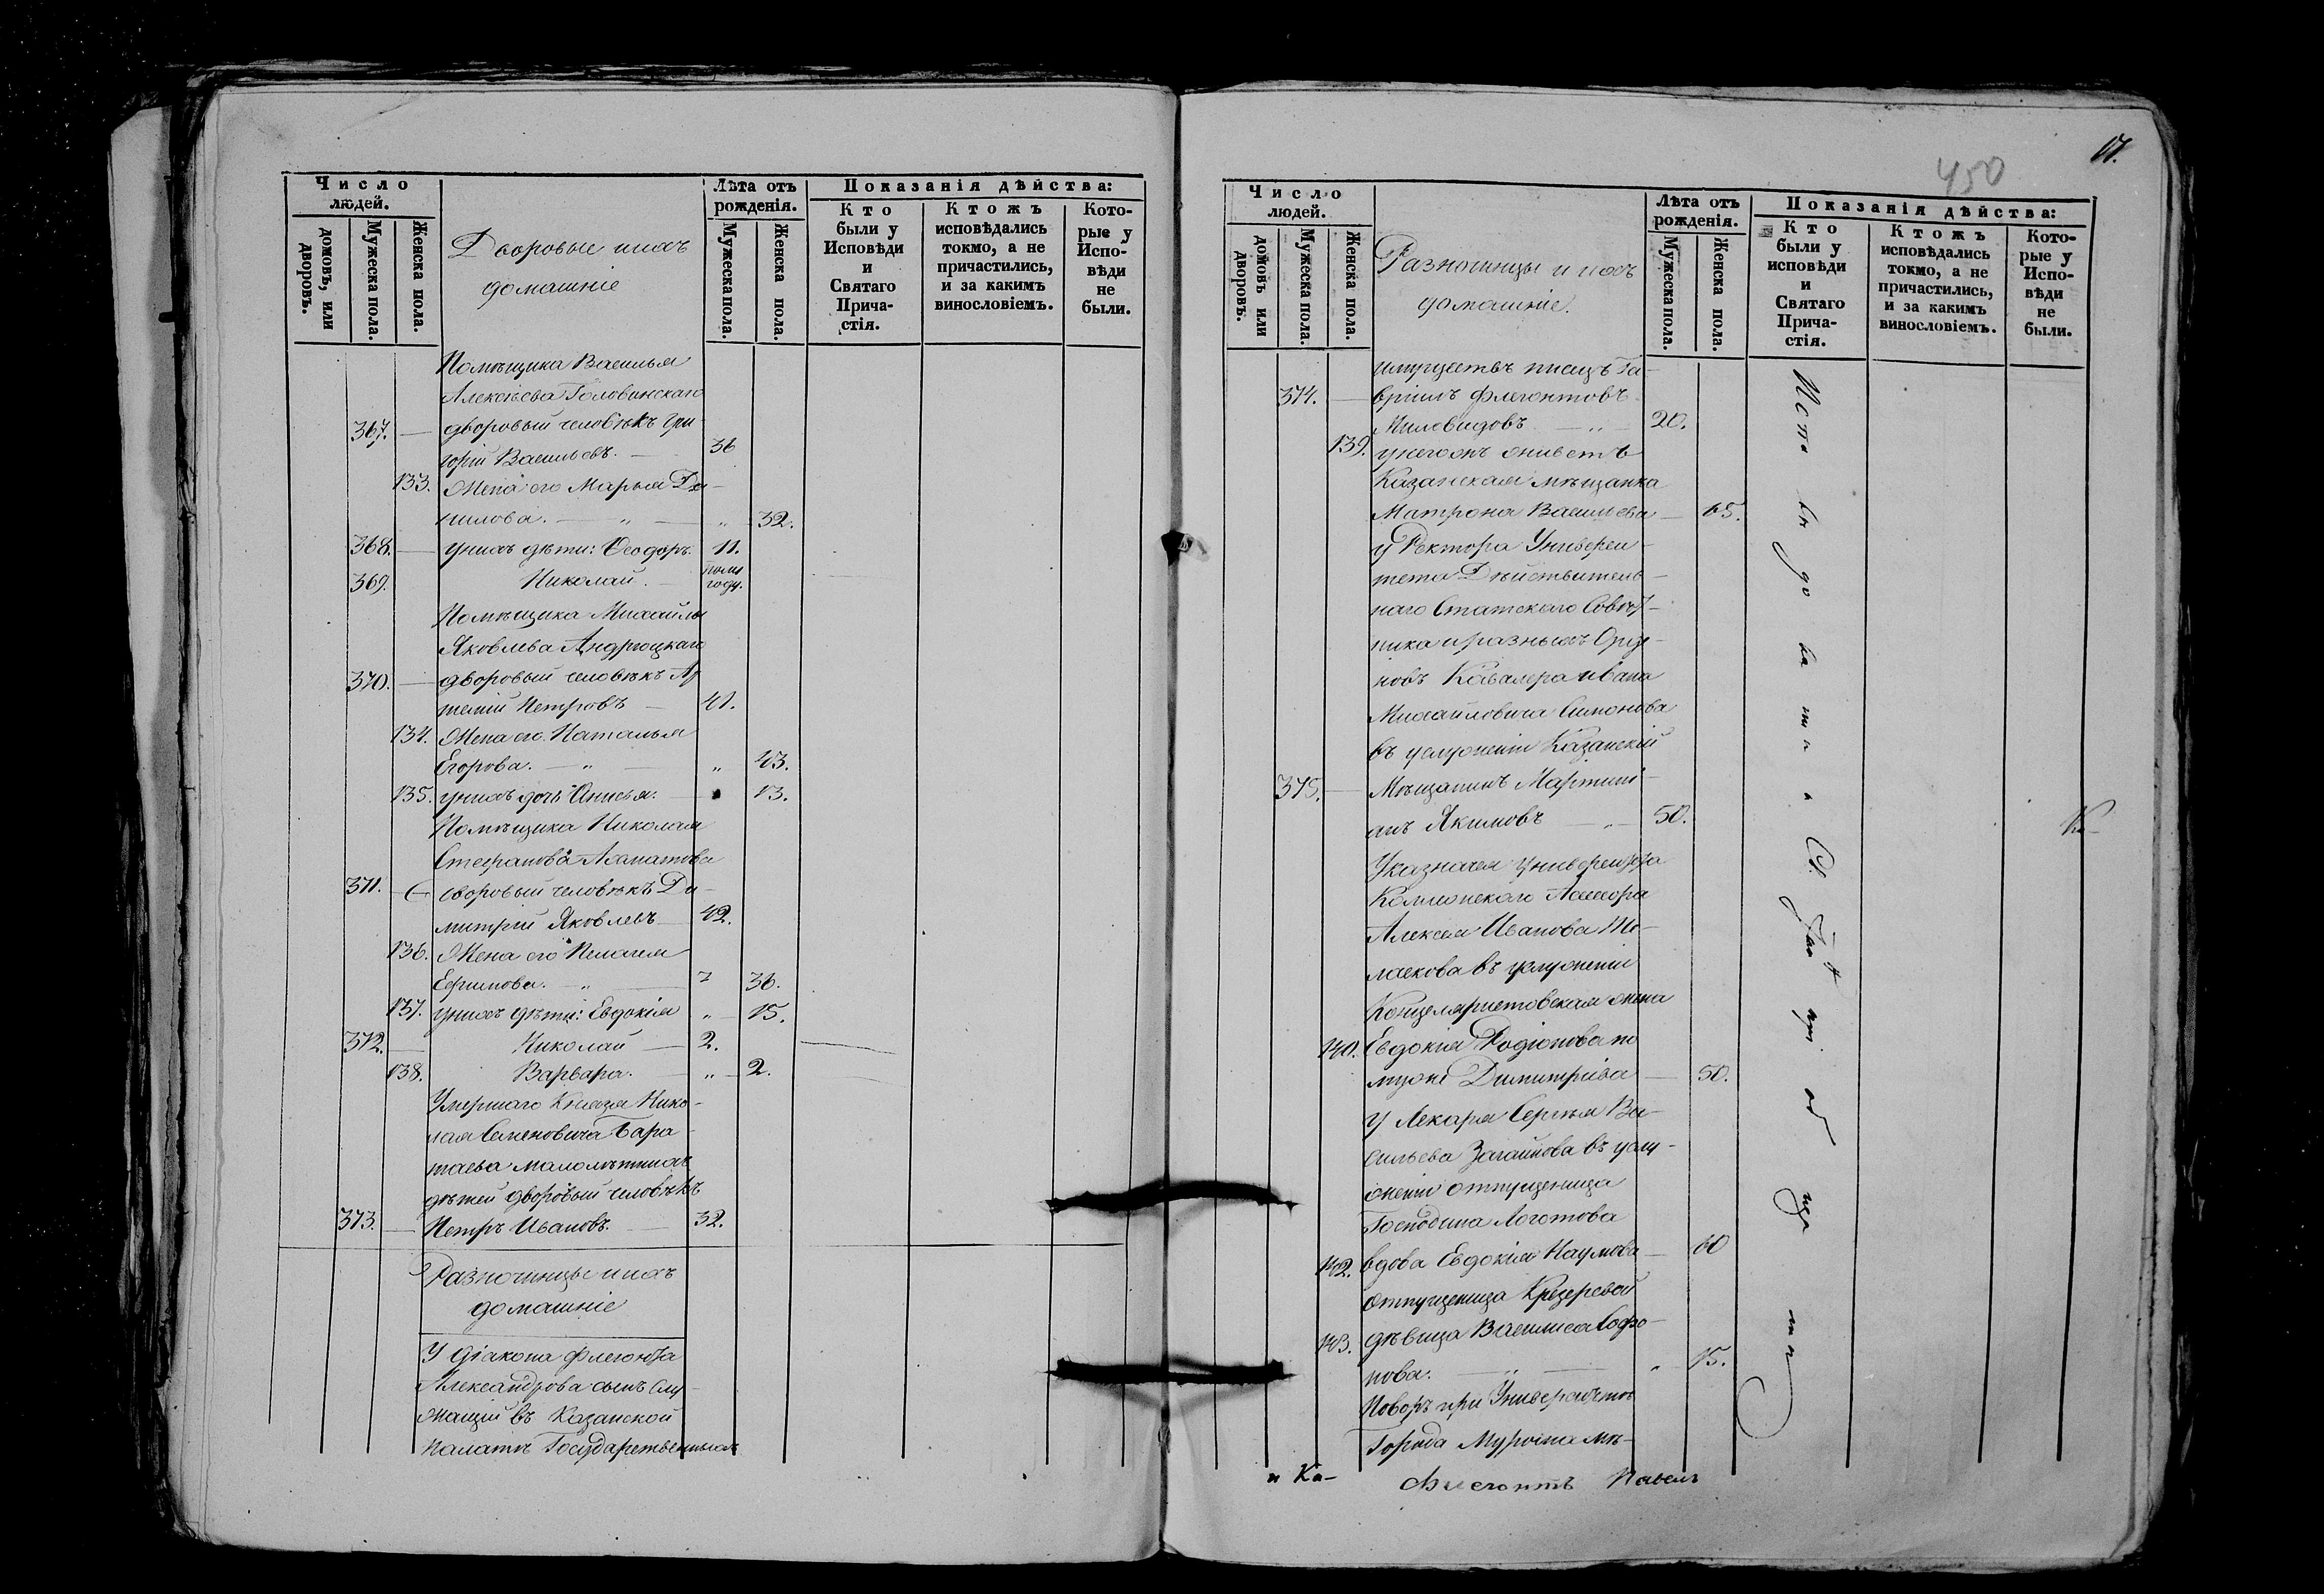 Число людей.
домовъ, или дворовъ.
Мужеска пола.
Женска пола.
Дворовые и ихъ
домашніе
Лѣта отъ рожденія.
Мужеска пола.
Женска пола.
Показанія дѣйства:
Кто были у Исповѣди и Святаго Прича-стія.
Ктожъ исповѣдались токмо, а не причастились, и за какимъ винословіемъ.
Кото-рые у Испо-вѣди не были.
Помѣщика Василья
Алексѣева Головинскаго
367. — дворовый человѣкъ Гри-
горій Васильевъ. — 36
133. Жена его Марья Да-
нилова. — „ — „ 32.
368. — у нихъ дѣти: Ѳеодоръ. 11.
369. Николай. — полу году.
Помѣщика Михайлы
Яковлева Андроцкаго
370. — дворовый человѣкъ Ар
темій Петровъ — 41.
134. Жена его Наталья
Егорова. — „ — „ 43.
135. у нихъ дочь Анисья. 13.
Помѣщика Николая
Стефанова Ахматова
371. — дворовый человѣкъ Ди-
митрій Яковлевъ 42.
136. Жена его Пелагея
Ефимова. — „ — 36.
137. у нихъ дѣти: Евдокія „ — 15.
372. — Николай — 2.
138. Варвара. — „ — 2.
Умершаго Князя Нико-
лая Семеновича Бара-
таева малолѣтнихъ
дѣтей дворовый человѣкъ
373. — Петръ Ивановъ. — 32.
Разночинцы и ихъ
домашніе
У Діакона Флегонта
Александрова сынъ слу-
жащій въ Казанской
Палатѣ Государственныхъ
450
17.
Число людей.
домовъ или дворовъ.
Мужеска пола.
Женска пола.
Разночинцы и ихъ
домашніе.
Лѣта отъ рожденія.
Мужеска пола.
Женска пола.
Показанія дѣйства:
Кто были у исповѣди и Святаго Прича-стія.
Ктожъ исповѣдались токмо, а не причастились, и за какимъ винословіемъ.
Кото-рые у Испо-вѣди не были.
имуществъ писецъ Га-
374. — вріилъ Флегонтовъ
Миловидовъ — „ — 20.
139. у него въ живетъ
Казанская мѣщанка
Матрона Васильева — 65.
у Ректора Универси-
тета Дѣйствитель-
наго Статскаго Совѣт-
ника и разныхъ Орде-
новъ Кавалера Ивана
Михайловича Симонова
въ услуженіи Казанскій
375. — Мѣщанинъ Мартині-
анъ Якимовъ — „ — 50.
У казначея Университета
Коллежскаго Ассесора
Алексея Иванова
въ услуженіи
Канцеляристовская жена
140. Евдокія Родіонова по
мужѣ Димитріева — 50.
У Лекаря Сергѣя Ва-
сильева Загайнова въ услу-
женіи отпущеница
Господина Логотова
142. вдова Евдокія Наумова — 60
отпущеница
143. дѣвица Василиса Софро-
нова. — „ — „ 15.
Поваръ при Университетѣ
Города Мурома мѣ-
и Ка-
Флегонтъ Павелъ